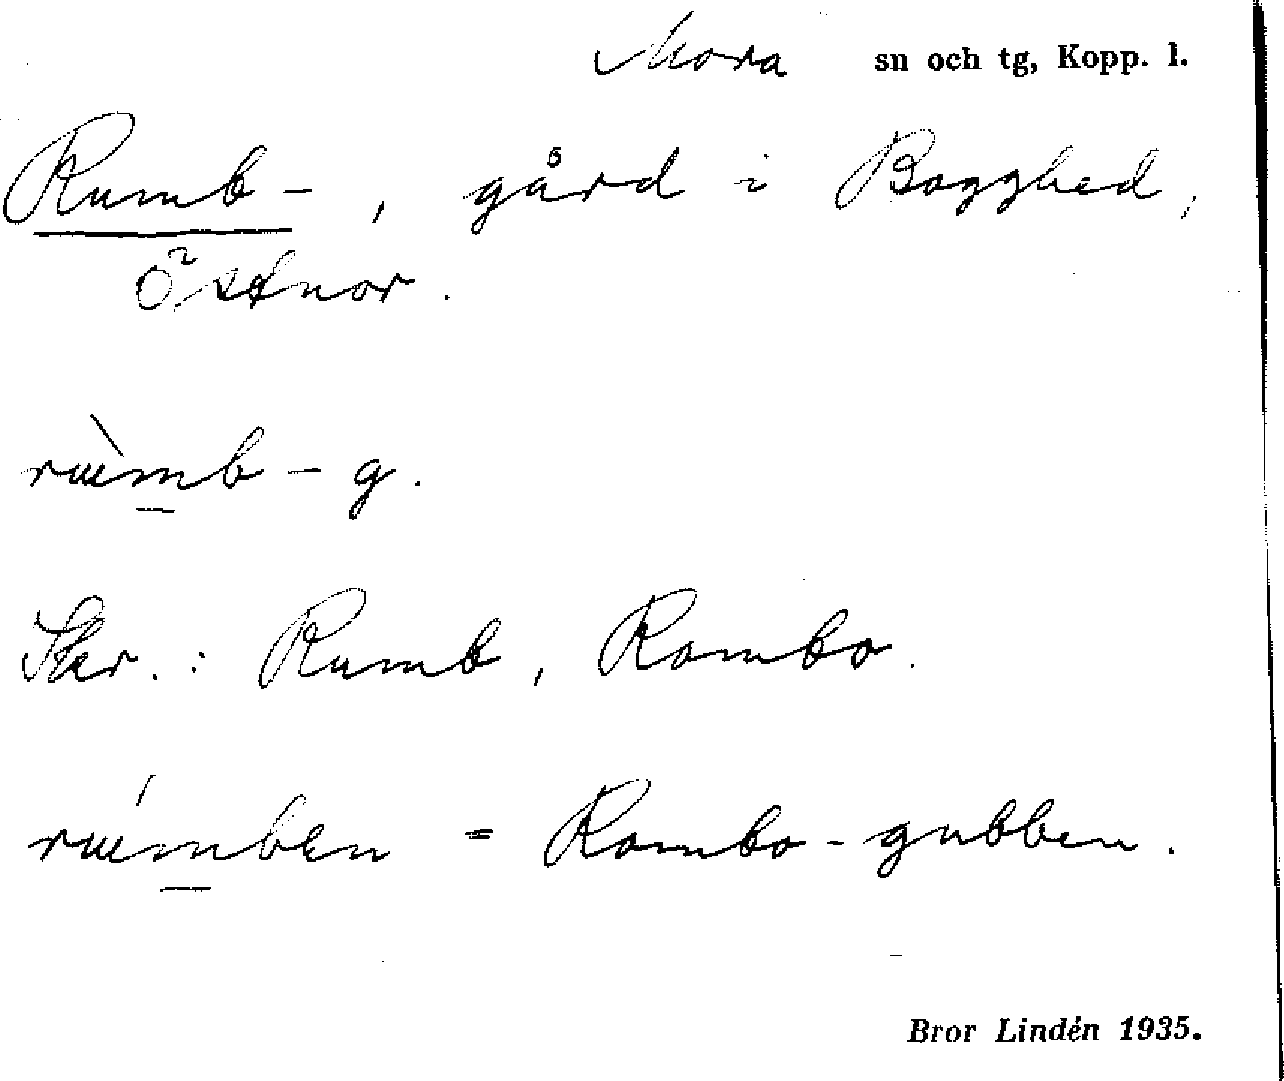 Mora sn och tg, Kopp. l.
Rumb-, gård i Bogghed,
Östnor.
rɯ̀m̲b-g.
Skr.: Rumb, Rombo.
rɯ́m̲ben = Rombo-gubben.
Bror Lindén 1935.